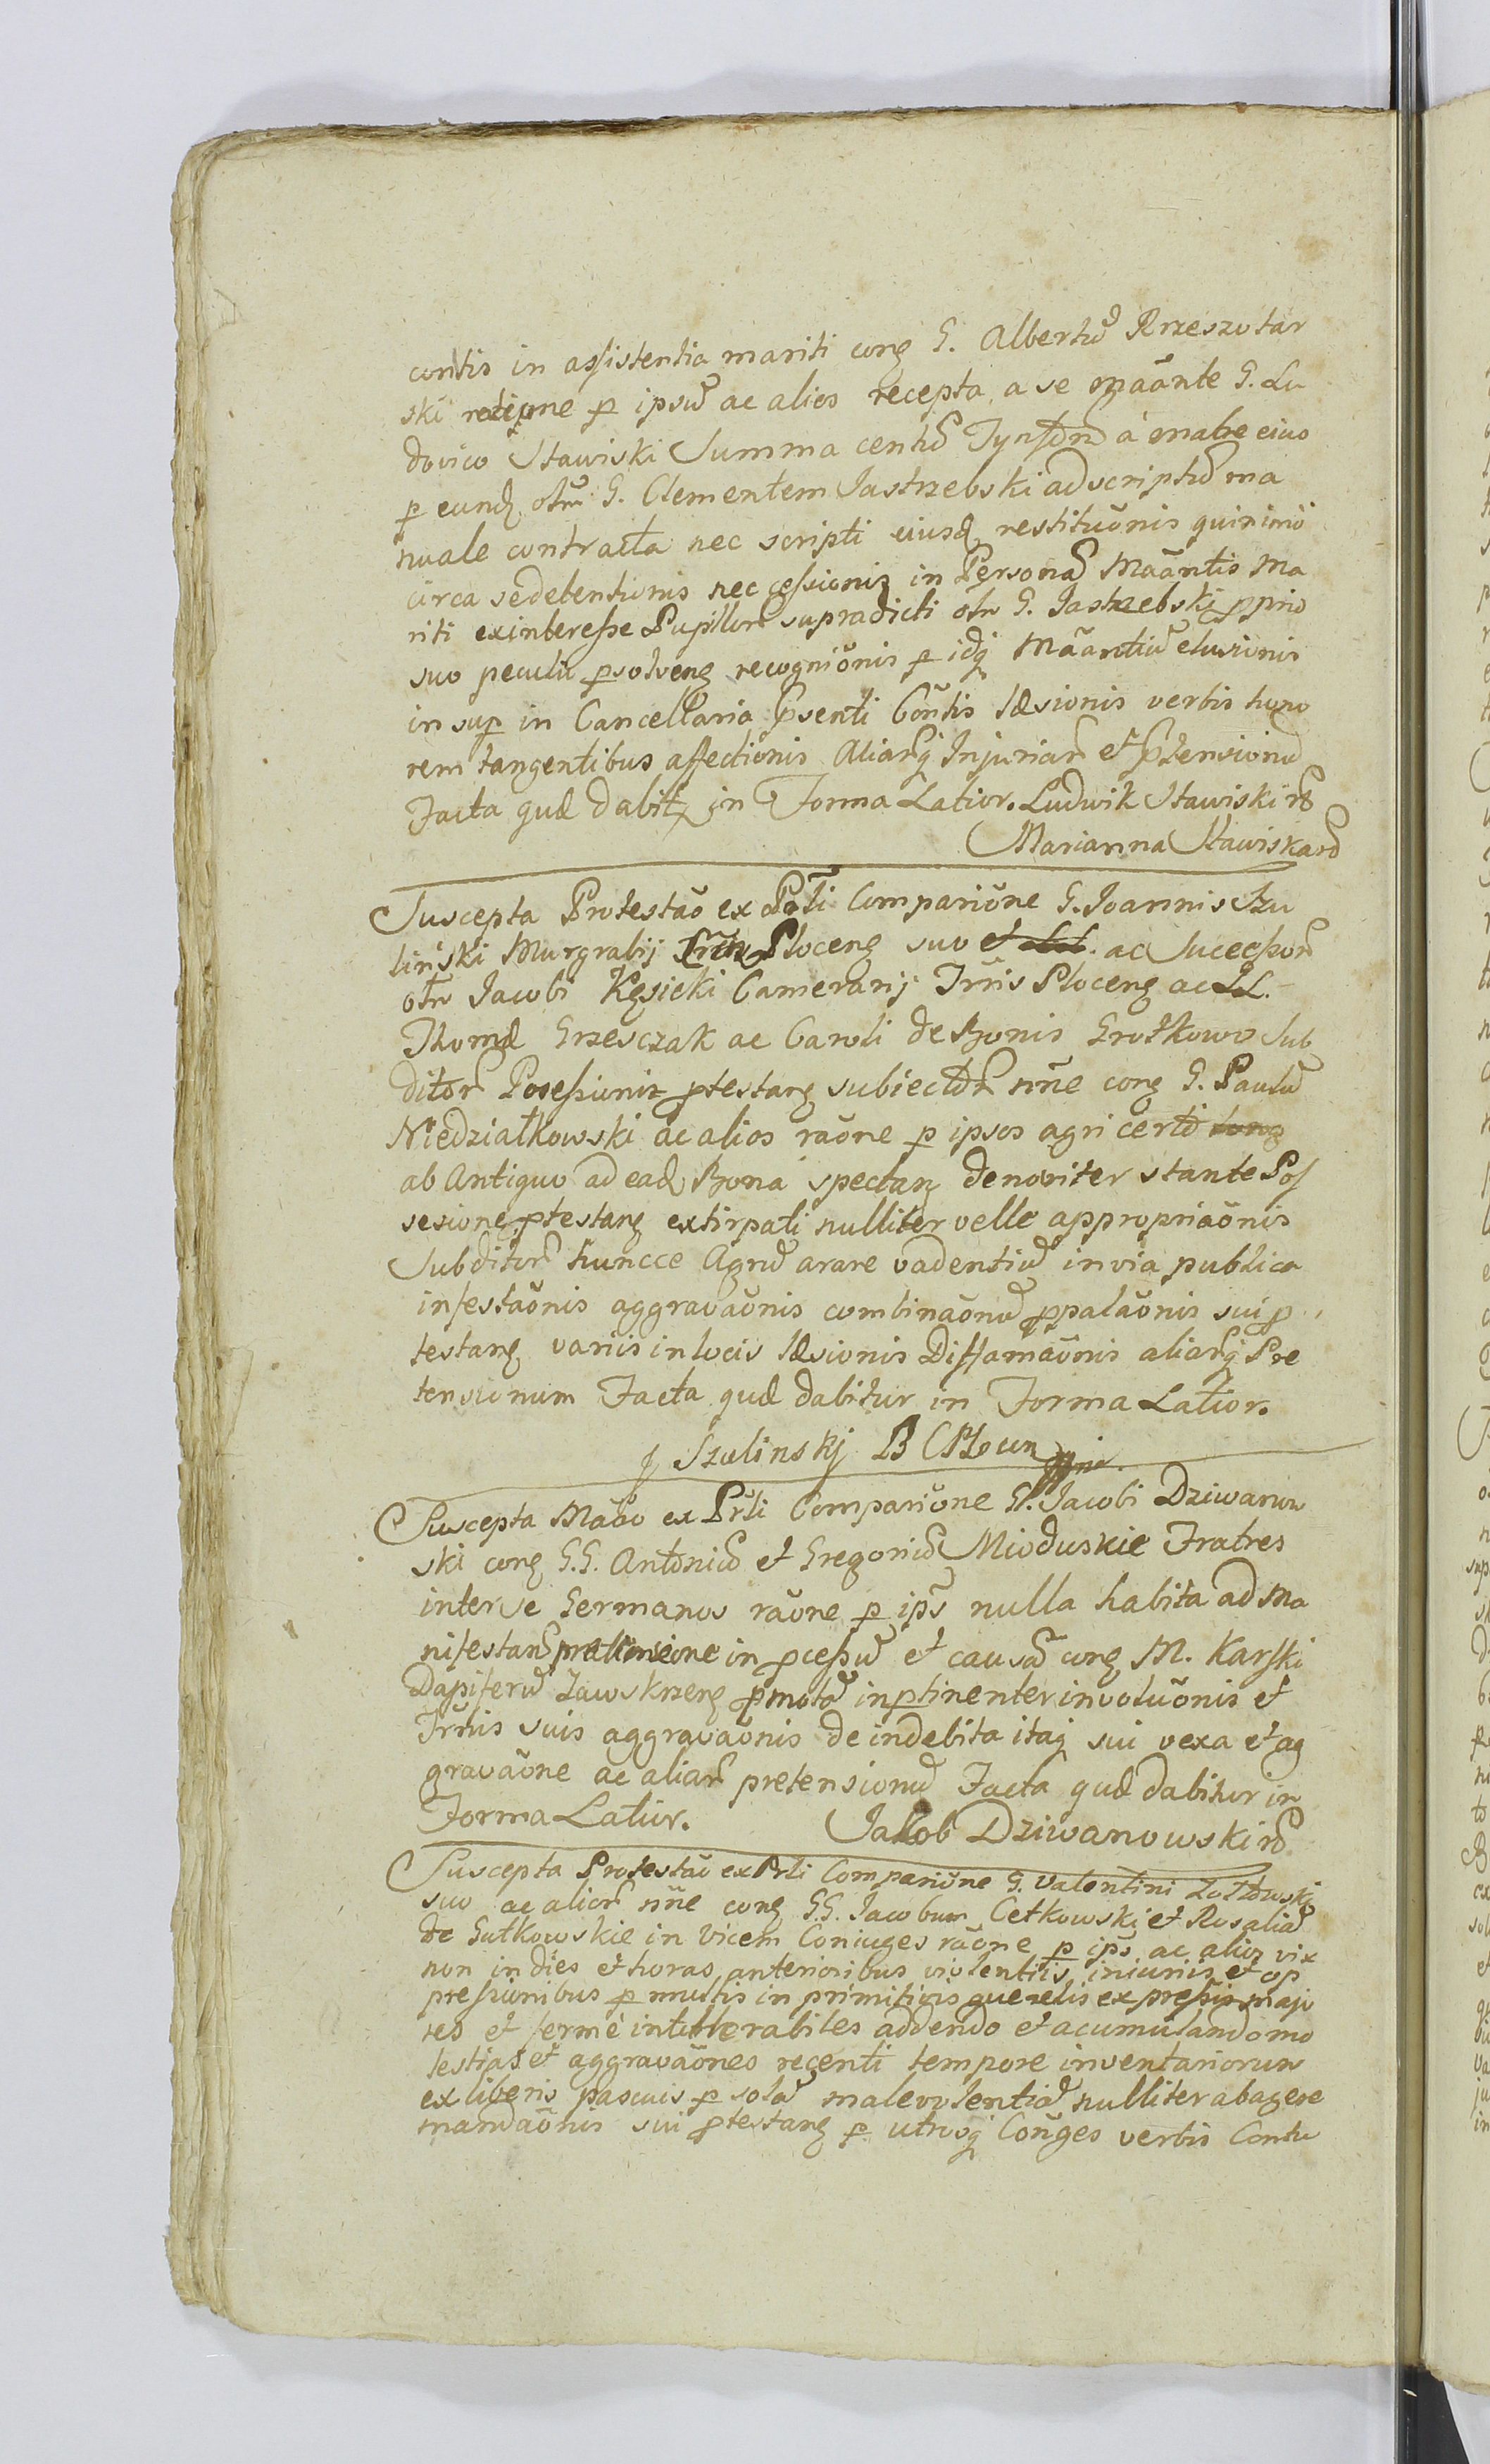 contis in assistentia mariti cong G. Albertũ Rzeszotar
ski ratione p ipsũ ac alios recepta a se mãante G. Lu
dovico Stawiski Summa centũ Tynf à matre eius
p eund olim G. Clementem Jastrzebski adscriptũ ma
nuale contracta nec scripti eiusd restituõnis quinimò
circa se detentionis nec cessionis in Personã Mãantis Ma
riti ex interesse Pupillorũ supradicti olim G. Jastrzebski pprio
suo peculii psolveng recogniõnis p idq Mãantiũ elusionis
in sup in Cancellaria Psenti Contis læsionis verbis hono
rem tangentibus affectionis Aliarq Injuriarũ et Ptensionũ
Facta quæ dabitr in Forma Latior. Ludwik Stawiski
Marianna Stawiska
Suscepta Protestão ex Psẽli Compariõne G. Joannis Szu
liński Murgrabij Ploceng suo et LL. ac Sucessorũ
olim Jacobi Kęsicki Camerarij Trris Ploceng ac LL.
Thomæ Grzesczak ac Caroli de Bonis Grotkowo Sub
ditorũ Posessionis ptestang subiectorũ nñe cong G. Paulũ
Niedziałkowski ac alios raõne p ipsos agri certi
ab Antiquo ad ead Bona spectan denoviter stante Pos
sesione ptestang extirpati nulliter velle appropriaõnis
Subditorũ huncce Agrũ arare vadentiũ in via publica
infestaõnis aggravaõnis combinaõnũ ppalaõnis sui p
testang variis in locis læsionis Diffamaõnis aliarq Pre
tensionum Facta quæ dabitur in Forma Latior.
J Szulinskj B G Ploun
Suscepta Mãão ex Prli Compariõne G. Jacobi Dziwanow
ski cong G.G. Antoniũ et Gregoriũ Mioduskie Fratres
inter se Germanos raõne p ips nulla habita ad Ma
nifestanũ pretensione in pcessũ et causã cong M. Karski
Dapiferũ Zawskrzeng pmotã inptinenter involuõnis et
Trmis suis aggravaõnis de indebita itaq sui vexa et ag
gravaõne ac aliarũ pretensionũ Facta quæ dabitur in
Forma Latior. Jakob Dziwanowski
Suscepta Protestão ex Prli Compariõne G. Valentini Zołtowski
suo ac aliorũ nñe cong G.G. Jacobum Cetkowski et Rosaliã
de Gutkowskie in Vicem Coniuges raõne p ips ac alios vix
non in dies et horas anterioribus violentiis iniuriis et op
pressionibus p multis in primitivis querelis expressis majo
res et fermè intollerabiles addendo et acumulando mo
lestias et aggravaõnes recenti tempore inventariorum
ex liberis pascuis p solã malevolentiã nulliter abagere
mandaõnis sui ptestang p utrosq Conges verbis Contu